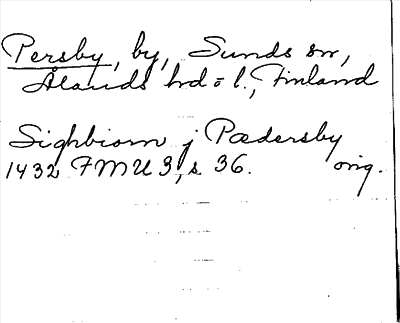 Persby, by, Sunds sn,
Ålands hd=l., Finland
Sighbiorn j Pædersby
1432 FMU 3, s. 36. orig.